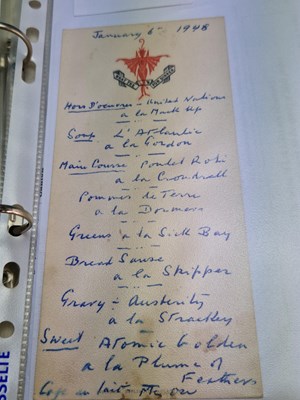 January 6th 1948
Hors D'oeuvres - United Nations
a la Mack Up
Soup L'Atlantic
a la Gordon
Main Course Poulet Roti
a la Crowdrall
Pommes de Terre
a la Dormers
Greens a la Sick Bay
Bread Sause
a la Skipper
Gravy - Austerity
a la Strackey
Sweet Atomic Golden
a la Plume of
Feathers
Cafe au lait - My own